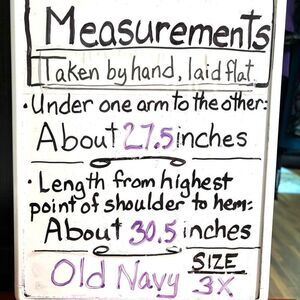 Measurements
Taken by hand, laid flat.
• Under one arm to the other:
About 27.5 inches
• Length from highest
point of shoulder to hem:
About 30.5 inches
Old Navy SIZE
3X